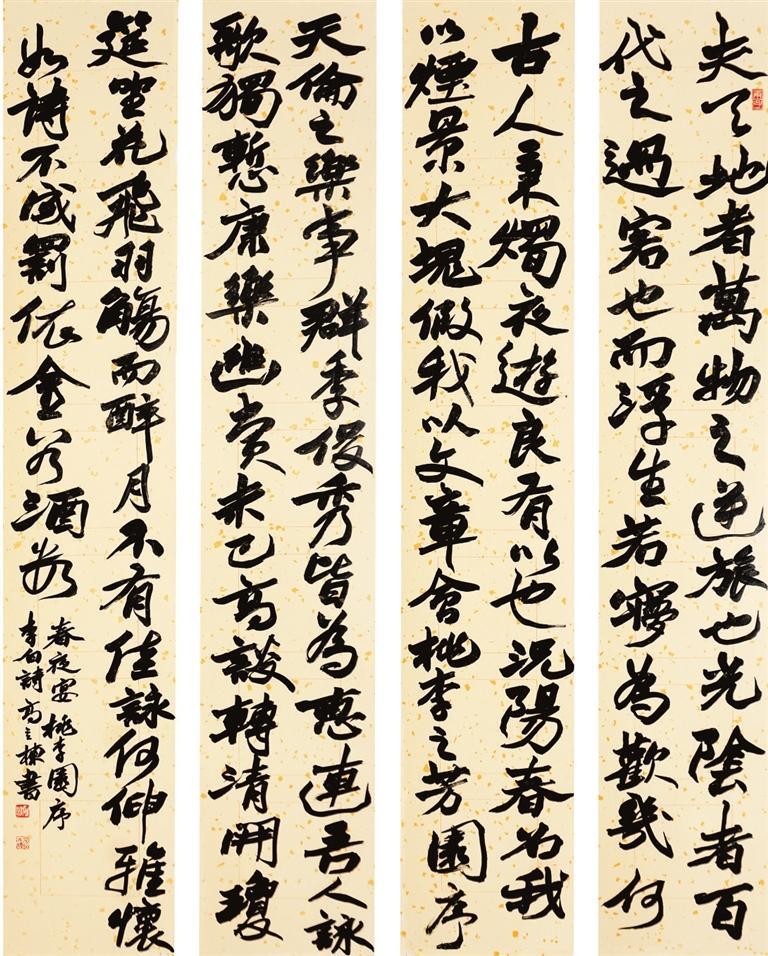 夫天地者萬物之逆旅也光陰者百
代之過客也而浮生若夢為歡幾何
古人秉燭夜遊良有以也況陽春召我
以煙景大塊假我以文章會桃李之芳園序
天倫之樂事群季俊秀皆為惠連吾人詠
歌獨慙康樂幽賞未已高談轉清開瓊
筵坐花飛羽觴而醉月不有佳詠何伸雅懷
如詩不成罰依金谷酒數
春夜宴桃李園序
李白詩高之棟書